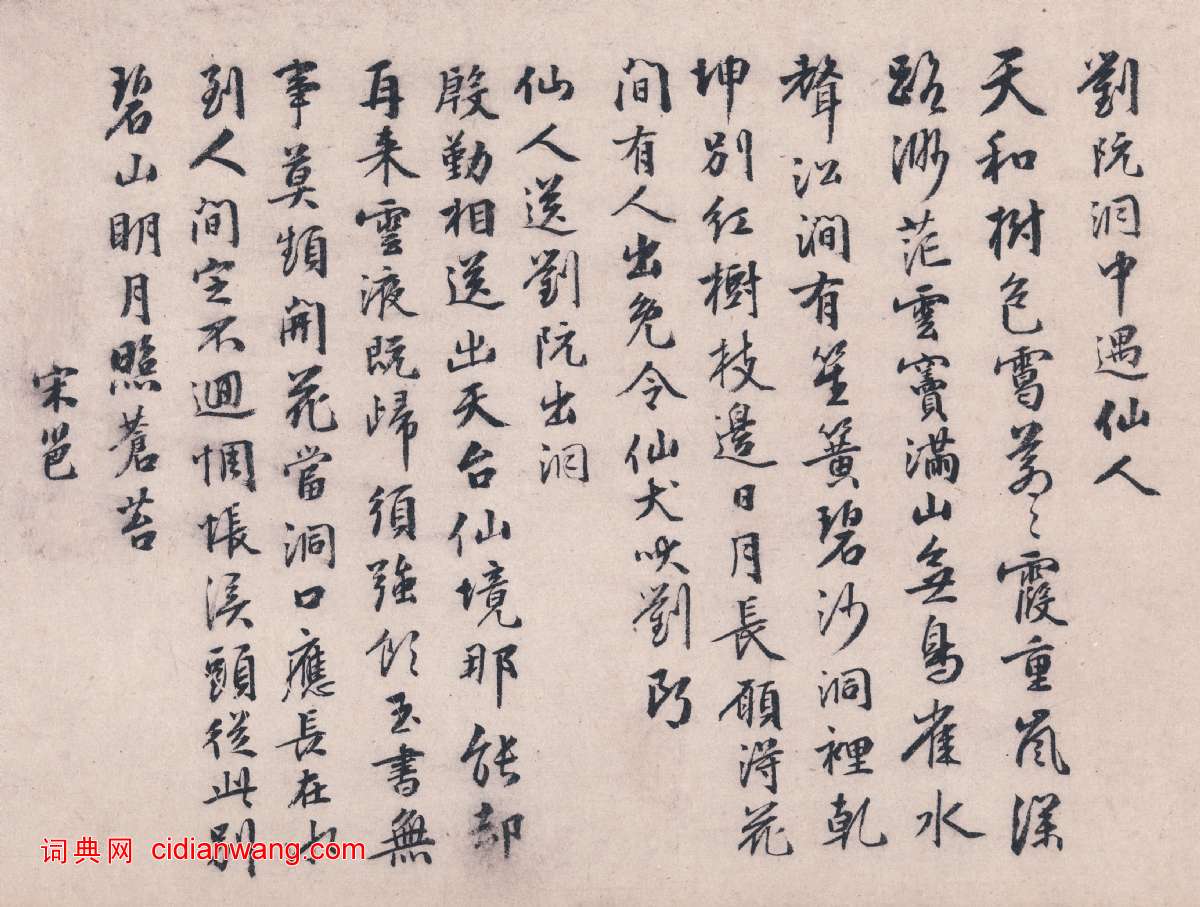 劉阮洞中遇仙人
天和樹色靄蒼〻霞重嵐深
路渺茫雲竇滿山無鳥雀水
聲沿澗有笙簧碧沙洞裡乾
坤別紅樹枝邊日月長願得花
間有人出免令仙犬吠劉郎
仙人送劉阮出洞
殷勤相送出天台仙境那能却
再来雲液既歸須強飲玉書無
事莫頻開花當洞口應長在水
到人間定不迴惆悵溪頭從此別
碧山明月照蒼苔
宋邕
词典网 cidianwang.com